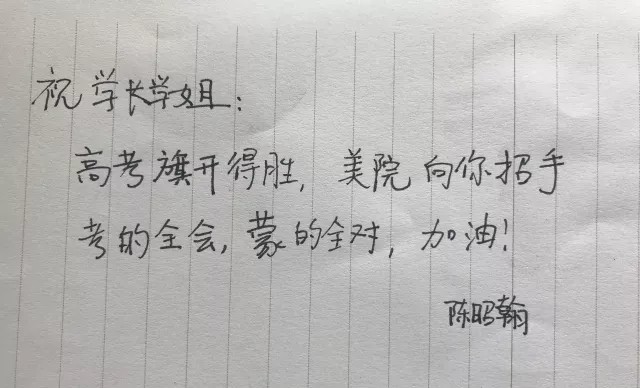 祝学长学姐:
高考旗开得胜, 美院向你招手
考的全会, 蒙的全对, 加油!
陈昭翰